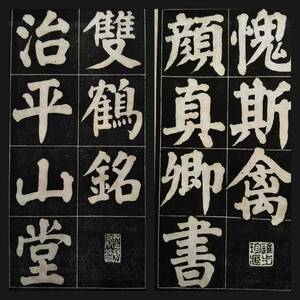 愧斯禽
顏真卿書
雙鶴銘
治平山堂